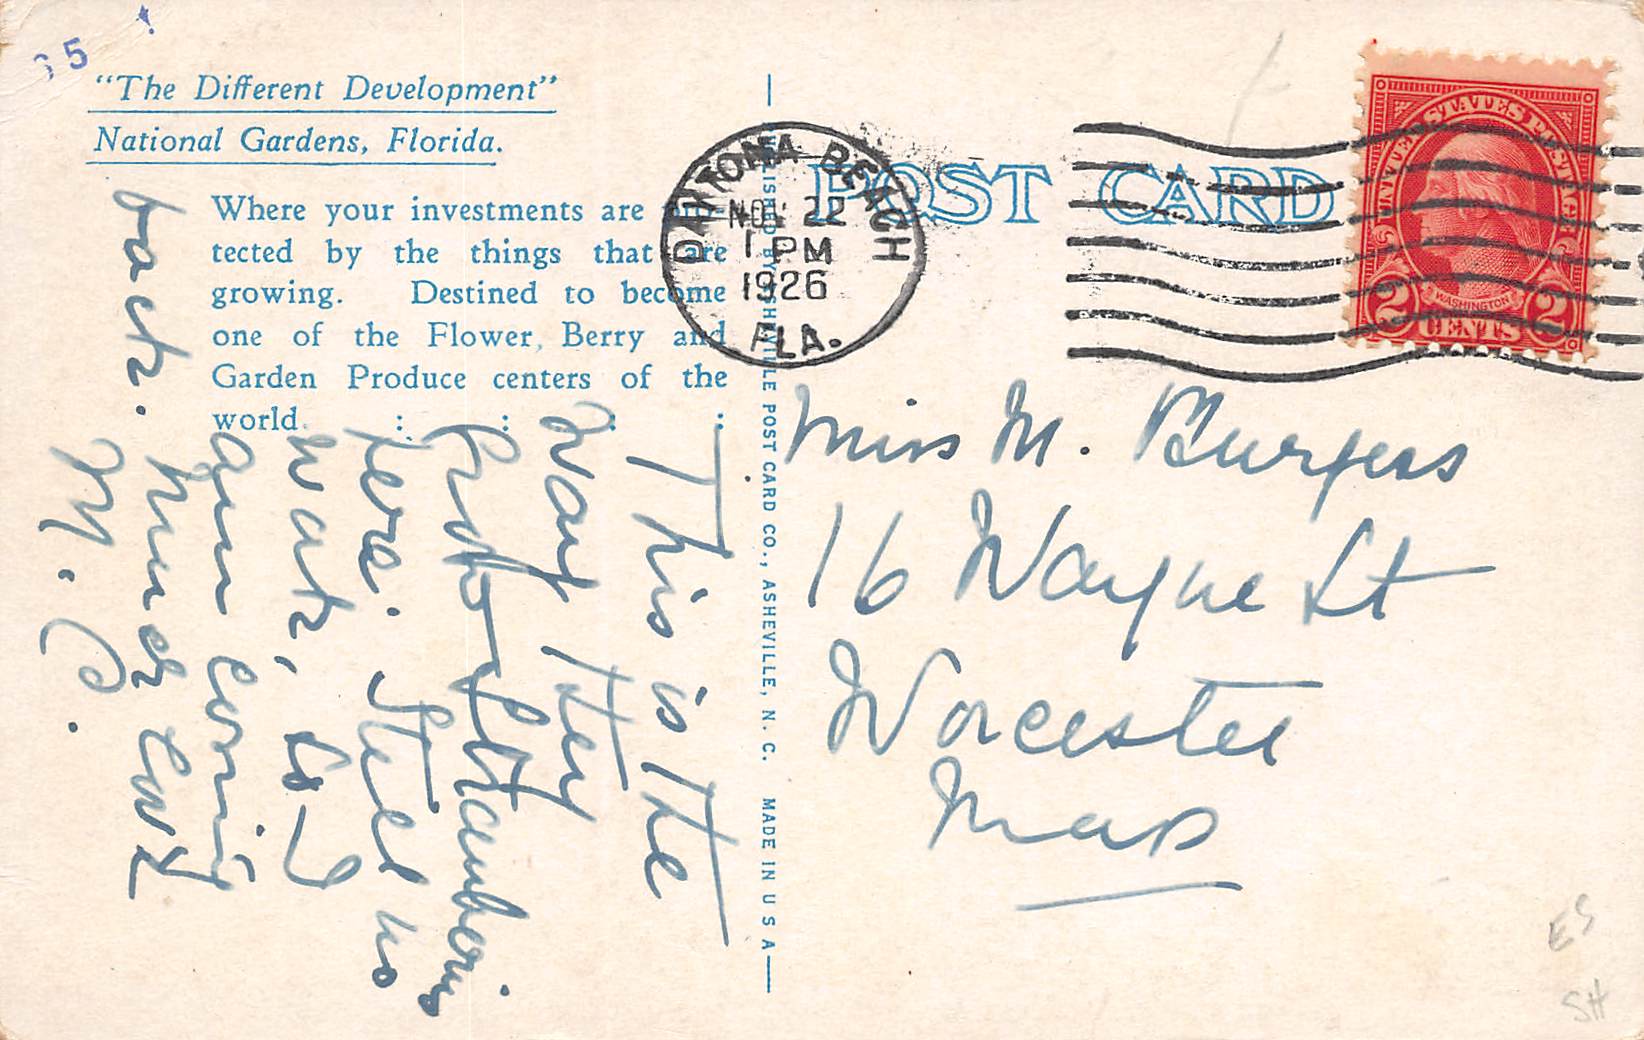 "The Different Development"
National Gardens, Florida.
Where your investments are pro-
tected by the things that are
growing. Destined to become
one of the Flower, Berry and
Garden Produce centers of the
world. : : : :
This is the
way they
here. Still no
work, so I
am coming
back.
Much love
M. C.
PUBLISHED BY ASHEVILLE POST CARD CO., ASHEVILLE, N. C. MADE IN U S A
POST CARD
DAYTONA BEACH
NOV 22
1 PM
1926
FLA.
UNITED STATES POSTAGE
WASHINGTON
2 CENTS 2
Miss M. Burgess
16 Wayne St
Worcester
Mass
ES
SH